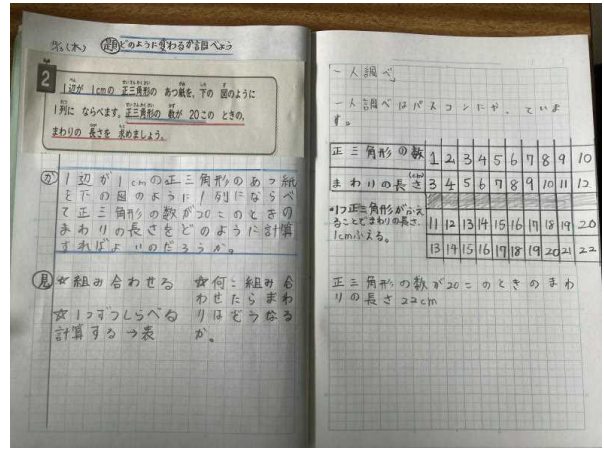 (木) 題 どのように変わるか調べよう
2
1辺が 1cmの 正三角形の あつ紙を、下の 図のように
1列に ならべます。正三角形の 数が 20この ときの、
まわりの 長さを 求めましょう。
か 1辺が1cmの正三角形のあつ紙
を下の図のように1列にならべ
て正三角形の数が20このときの
まわりの長さをどのように計算
すればよいのだろうか。
見 ☆組み合わせる
☆1つずつしらべる
計算する→表
☆何こ組み合
わせたらまわ
りはどうなる
か。
一人調べ
一人調べはパスコンにや、ていま
す。
正三角形の数 1 2 3 4 5 6 7 8 9 10
まわりの長さ(cm) 3 4 5 6 7 8 9 10 11 12
・1つ正三角形がふえ
ることでまわりの長さ
1cmふえる。
11 12 13 14 15 16 17 18 19 20
13 14 15 16 17 18 19 20 21 22
正三角形の数が20このときのまわ
りの長さ22cm